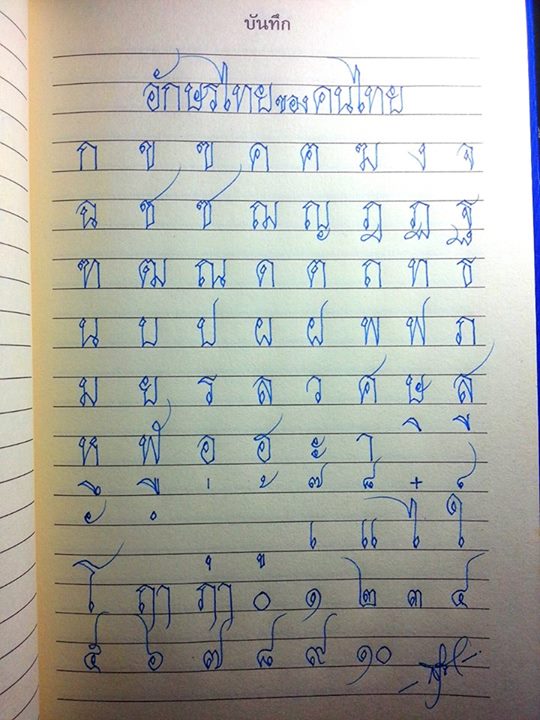 บันทึก
อักษรไทยของคนไทย
ก ข ฃ ค ฅ ฆ ง จ
ฉ ช ซ ฌ ญ ฎ ฏ ฐ
ฑ ฒ ณ ด ต ถ ท ธ
น บ ป ผ ฝ พ ฟ ภ
ม ย ร ล ว ศ ษ ส
ห ฬ อ ฮ ะ า ิ ี
ึ ื ่ ้ ๊ ๋ ์
ั ํ เ แ ไ ใ
โ ฤๅ ฦๅ ุ ู ๐ ๑ ๒ ๓ ๔
๕ ๖ ๗ ๘ ๙ ๑๐